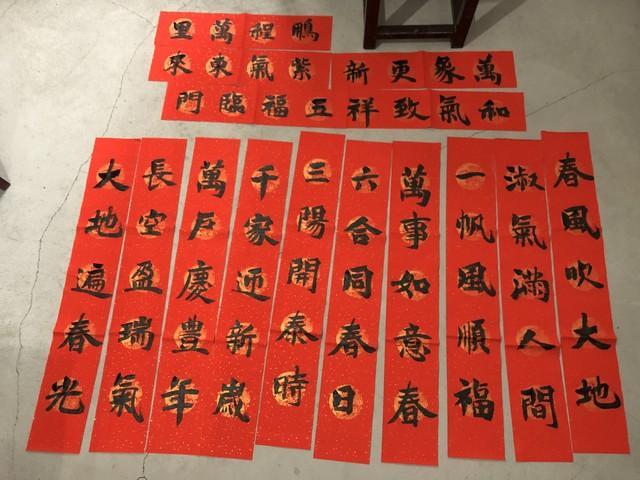 鵬程萬里
萬象更新
紫氣東來
和氣致祥
五福臨門
春風吹大地
淑氣滿人間
一帆風順福
萬事如意春
六合同春日
三陽開泰時
千家迎新歲
萬戶慶豐年
長空盈瑞氣
大地遍春光